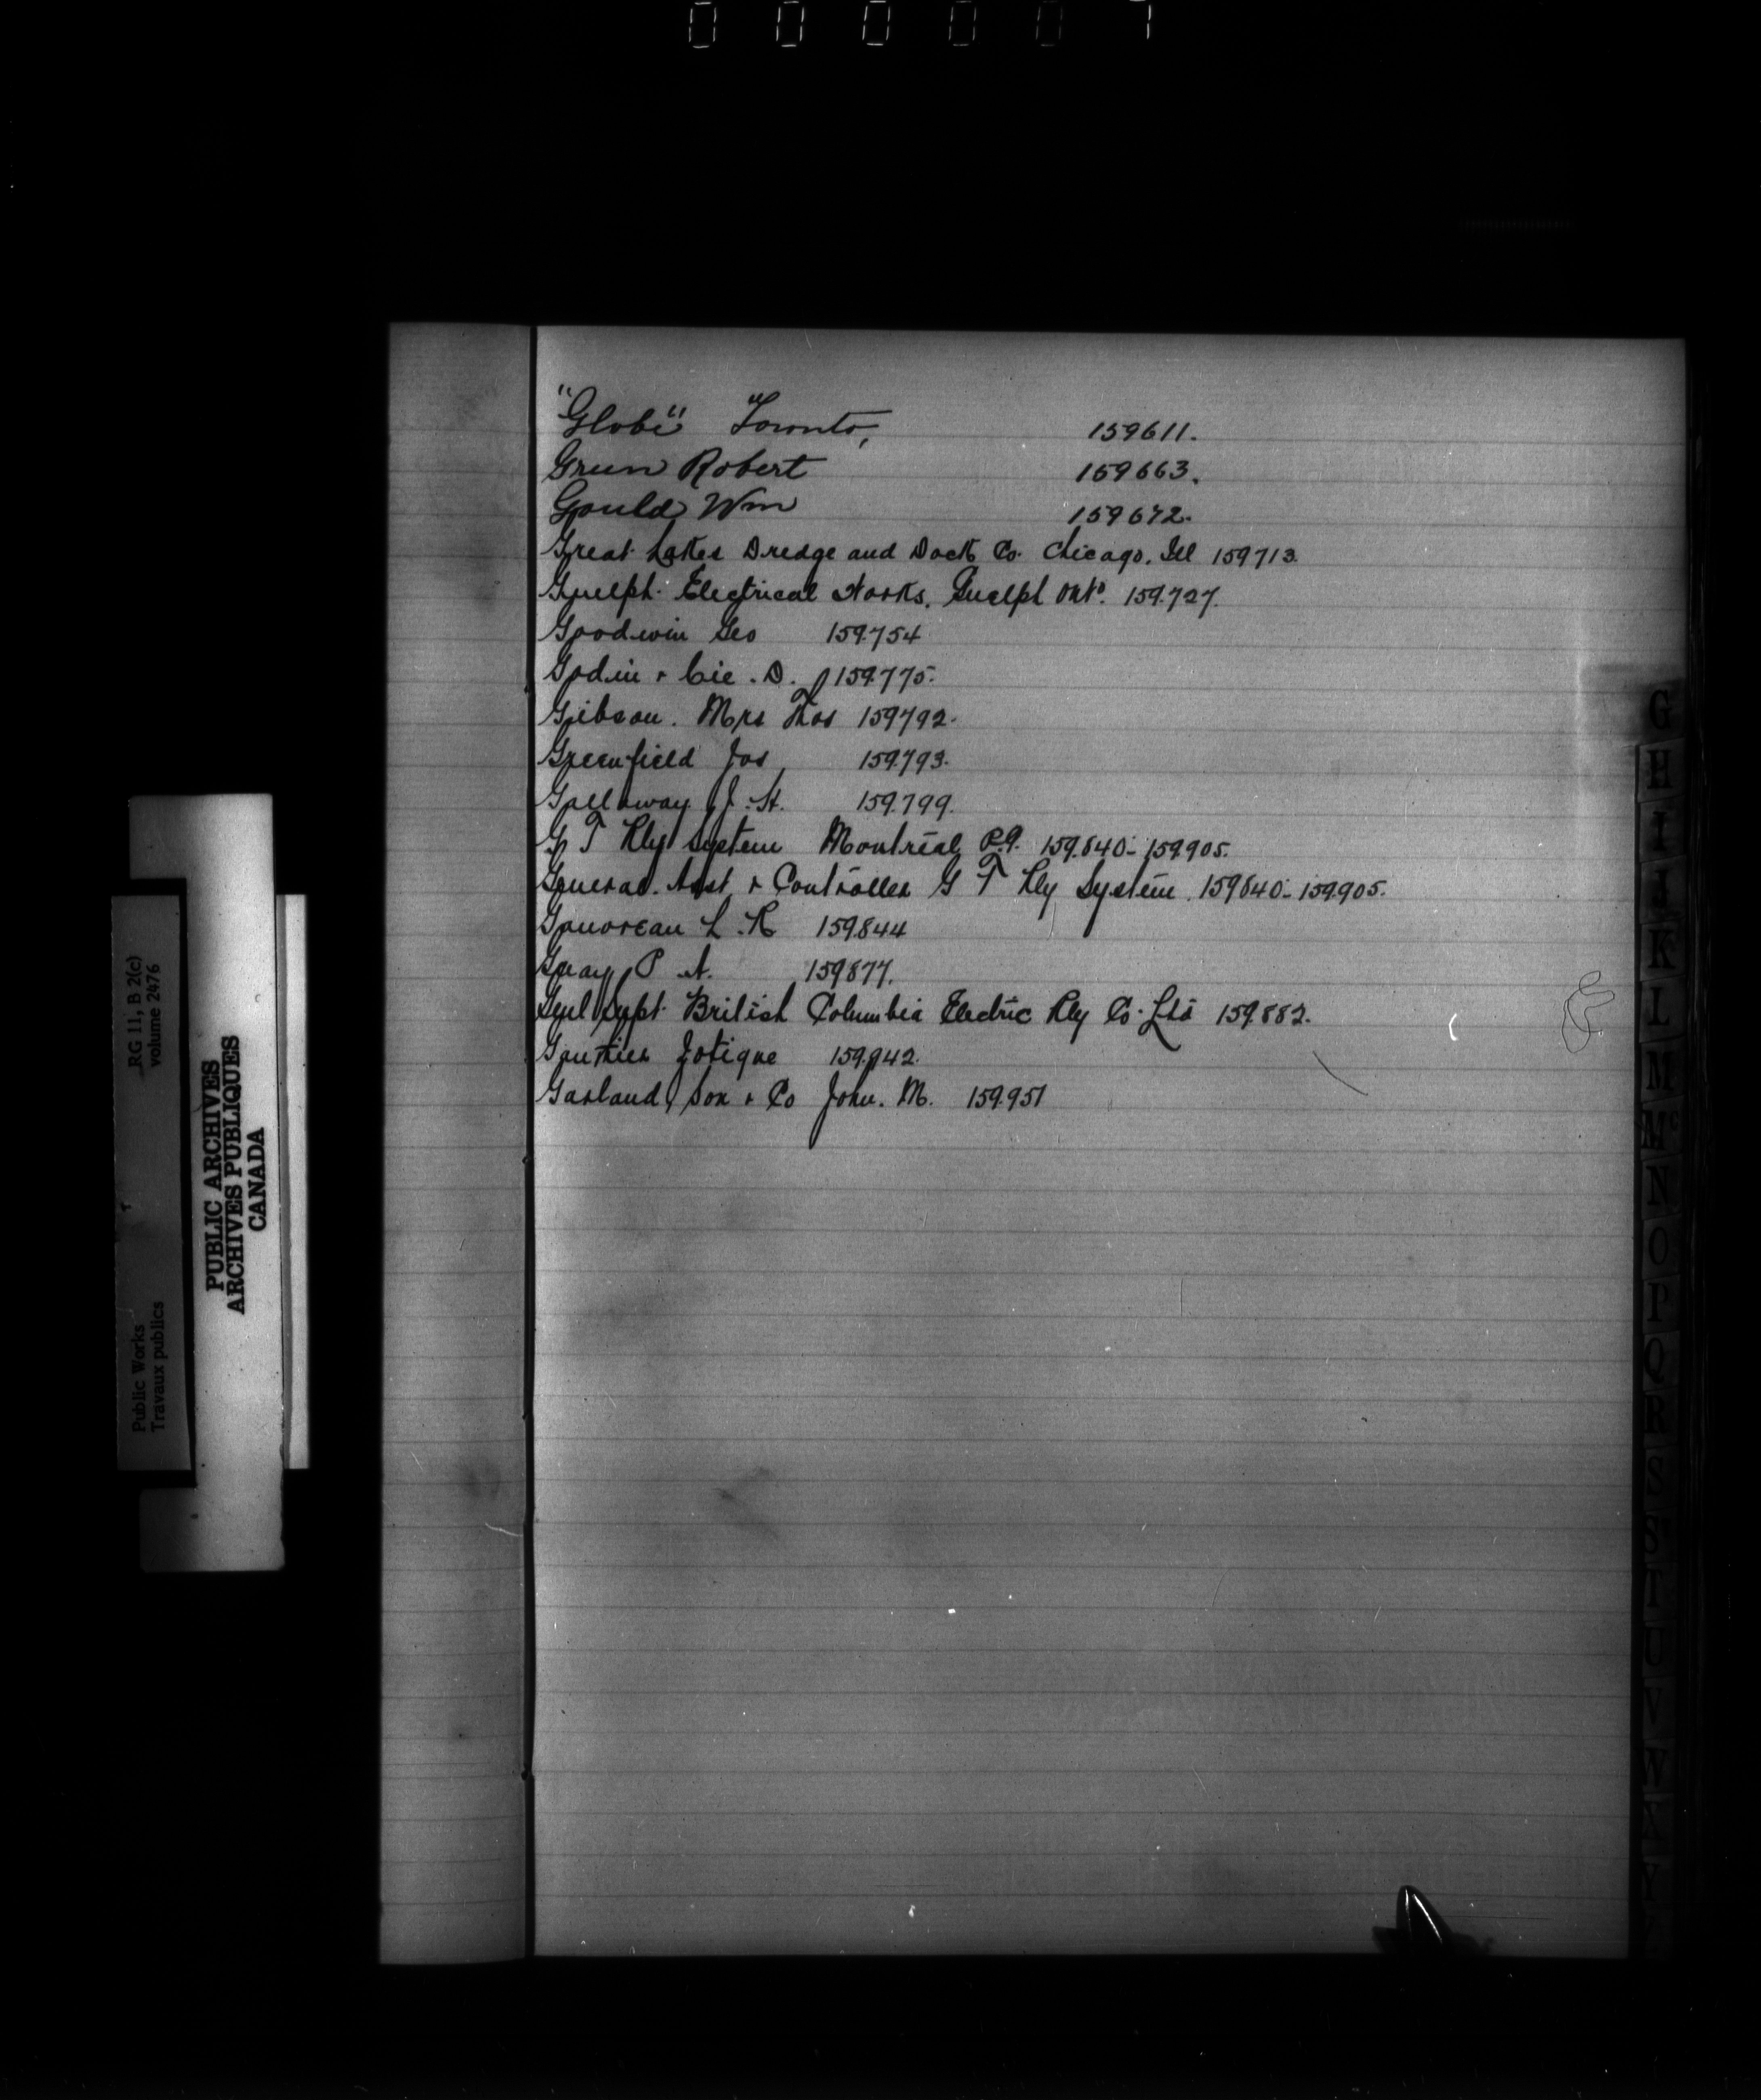 000007
"Globe" Toronto, 159611.
Green Robert 159663.
Gould Wm 159672.
Great Lakes Dredge and Dock Co. Chicago. Ill 159713.
Guelph Electrical Works. Guelph Ont°. 159.727.
Goodwin Geo 159.754
Godin & Cie. D. 159.775.
Gibson. Mrs Thos 159.792.
Greenfield Jos 159.793.
Galloway J. H. 159.799.
G T Rly System Montreal P.Q. 159.840 - 159.905.
General. Asst & Controller G T Rly System. 159840 - 159.905.
L. R 159.844
Gray P A. 159877.
Genl Supt. British Columbia Electric Rly Co. Ltd 159.882.
Gauthier Zotique 159.942.
Garland, Son & Co John. M. 159.951
G
H
I
J
K
L
M
Mc
N
O
P
Q
R
S
S
T
U
V
W
Y
RG 11, B 2(c)
volume 2476
Public Works
Travaux publics
PUBLIC ARCHIVES
ARCHIVES PUBLIQUES
CANADA